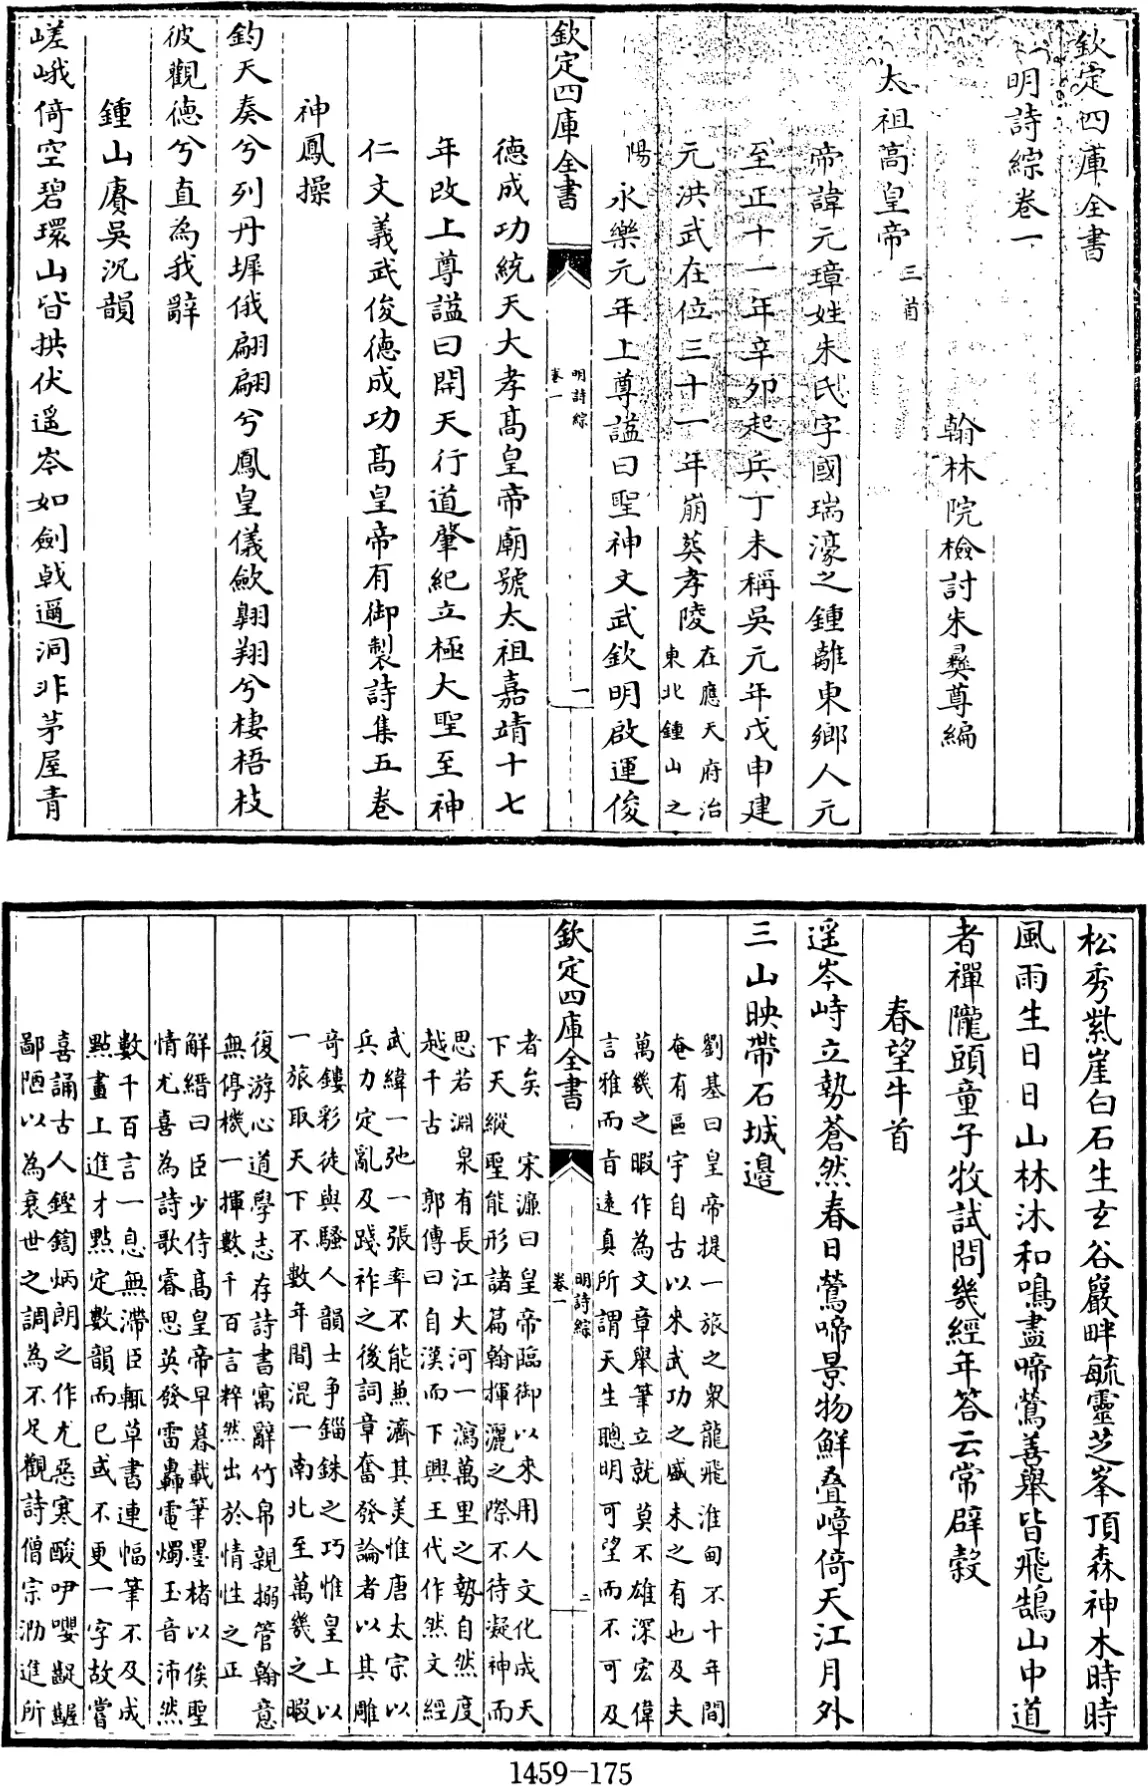 欽定四庫全書
明詩綜卷一
翰林院檢討朱彝尊編
太祖高皇帝三首
帝諱元璋姓朱氏字國瑞濠之鍾離東鄉人元
至正十一年辛卯起兵丁未稱吳元年戊申建
元洪武在位三十一年崩葬孝陵
在應天府治
東北鍾山之
陽 永樂元年上尊諡曰聖神文武欽明啟運俊
欽定四庫全書
明詩綜
卷一
一
德成功統天大孝高皇帝廟號太祖嘉靖十七
年改上尊諡曰開天行道肇紀立極大聖至神
仁文義武俊德成功高皇帝有御製詩集五卷
神鳳操
鈞天奏兮列丹墀俄翩翩兮鳳皇儀歘翺翔兮棲梧枝
彼觀德兮直為我辭
鍾山賡吳沉韻
嵯峨倚空碧環山皆拱伏遙岑如劍戟邇洞非茅屋青
松秀紫崖白石生玄谷巖畔毓靈芝峯頂森神木時時
風雨生日日山林沐和鳴盡啼鶯善舉皆飛鵠山中道
者禪隴頭童子牧試問幾經年答云常辟穀
春望牛首
遥岑峙立勢蒼然春日鶯啼景物鮮叠嶂倚天江月外
三山映帶石城邊
劉基曰皇帝提一旅之衆龍飛淮甸不十年間
奄有區宇自古以來武功之盛未之有也及夫
萬幾之暇作為文章舉筆立就莫不雄深宏偉
言雅而旨遠真所謂天生聰明可望而不可及
欽定四庫全書
明詩綜
卷一
二
者矣 宋濂曰皇帝臨御以來用人文化成天
下天縱聖能形諸篇翰揮灑之際不待凝神而
思若淵泉有長江大河一瀉萬里之勢自然度
越千古 郭傳曰自漢而下興王代作然文經
武緯一弛一張率不能兼濟其美惟唐太宗以
兵力定亂及踐祚之後詞章奮發論者以其雕
奇鏤彩徒與騷人韻士爭錙銖之巧惟皇上以
一旅取天下不數年間混一南北至萬幾之暇
復游心道學志存詩書寓辭竹帛親搦管翰意
無停機一揮數千百言粹然出於情性之正
解縉曰臣少侍高皇帝早暮載筆墨楮以俟聖
情尤喜為詩歌睿思英發雷轟電燭玉音沛然
數千百言一息無滯臣輒草書連幅筆不及成
點畫上進才點定數韻而已或不更一字故嘗
喜誦古人鏗鍧炳朗之作尤惡寒酸咿嚶齷齪
鄙陋以為衰世之調為不足觀詩僧宗泐進所
1459-175